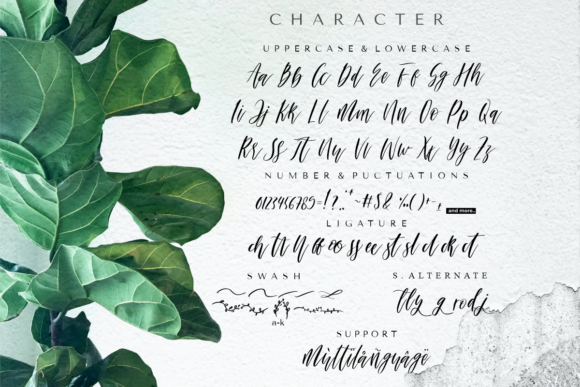 CHARACTER
UPPERCASE & LOWERCASE
Aa Bb Cc Dd Ee Ff Sg Hh
Ii Jj Kk Ll Mm Nn Oo Pp Qa
Rr Ss Tt Ny Vi Ww Xx Yy Zz
NUMBER & PUCTUATIONS
0123456789=!?..'*~#$& %()+-,
and more..
LIGATURE
ch tt ff oo ss ee st sl cl ck ot
SWASH
S. ALTERNATE
a-k
tlly g rodj
SUPPORT
Mùltïlàñgùágë